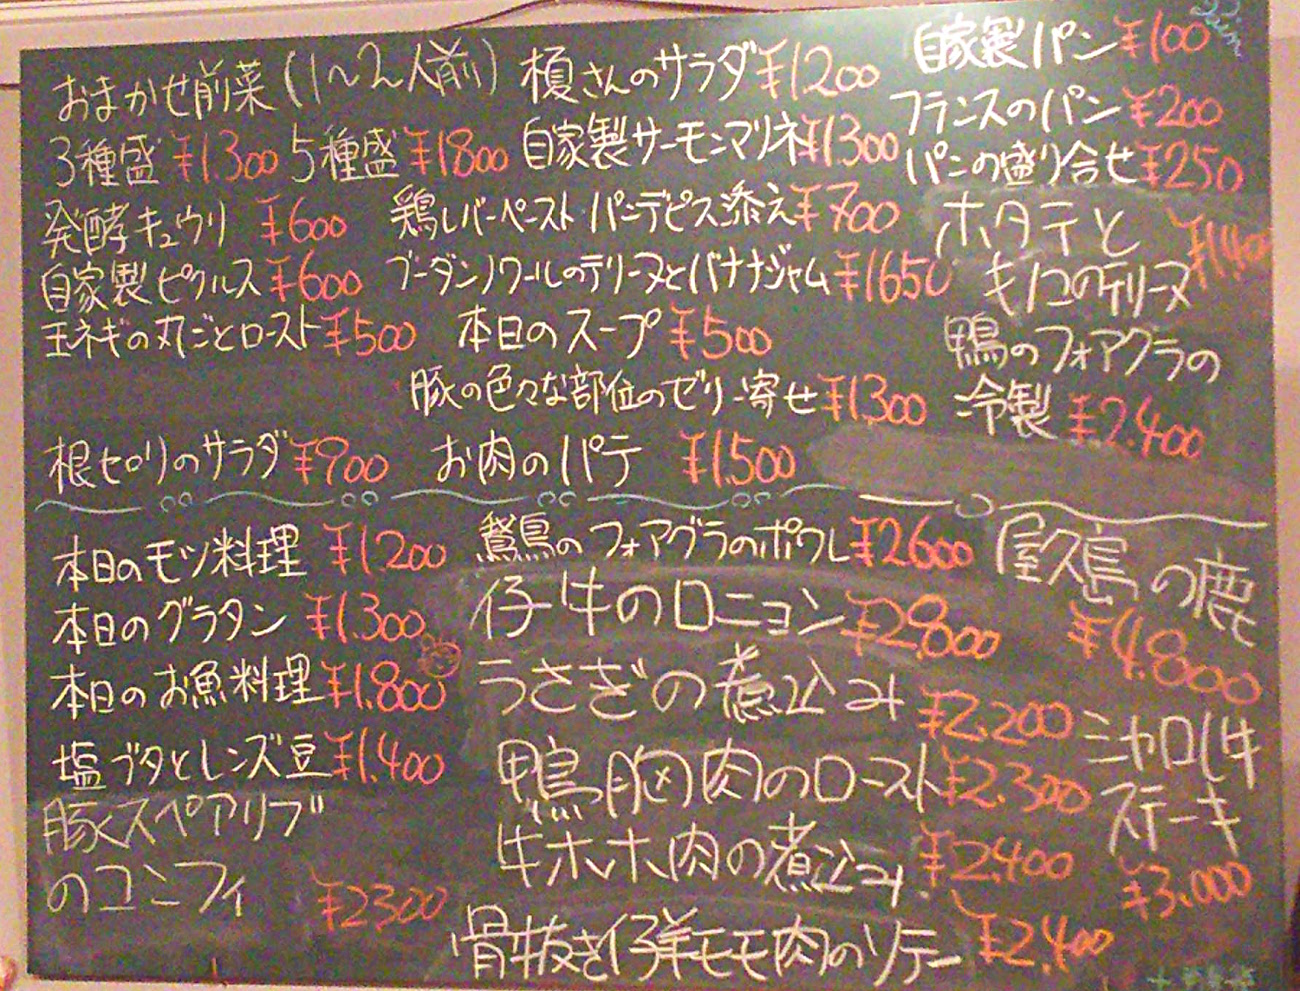 おまかせ前菜(1〜2人前)
3種盛 ¥1.300 5種盛 ¥1800
発酵キュウリ ¥600
自家製ピクルス ¥600
玉ネギの丸ごとロースト ¥500
根セロリのサラダ ¥900
榎さんのサラダ ¥1200
自家製サーモンマリネ ¥1300
鶏レバーペースト パンデピス添え ¥700
ブーダンノワールのテリーヌとバナナジャム ¥1650
本日のスープ ¥500
豚の色々な部位のゼリー寄せ ¥1300
お肉のパテ ¥1.500
自家製パン ¥100
フランスのパン ¥200
パンの盛り合せ ¥250
ホタテと
キノコのテリーヌ
鴨のフォアグラの
冷製 ¥2.400
本日のモツ料理 ¥1.200
本日のグラタン ¥1.300
本日のお魚料理 ¥1.800
塩ブタとレンズ豆 ¥1.400
豚スペアリブ
のコンフィ ¥2300
鵞鳥のフォアグラのポワレ ¥2600
仔牛のロニョン ¥2.800
うさぎの煮込み ¥2.200
鴨胸肉のロースト ¥2.300
牛ホホ肉の煮込み ¥2.400
骨抜き仔羊モモ肉のソテー ¥2.400
屋久島の鹿
¥4.800
シャロレ牛
ステーキ
¥3.000